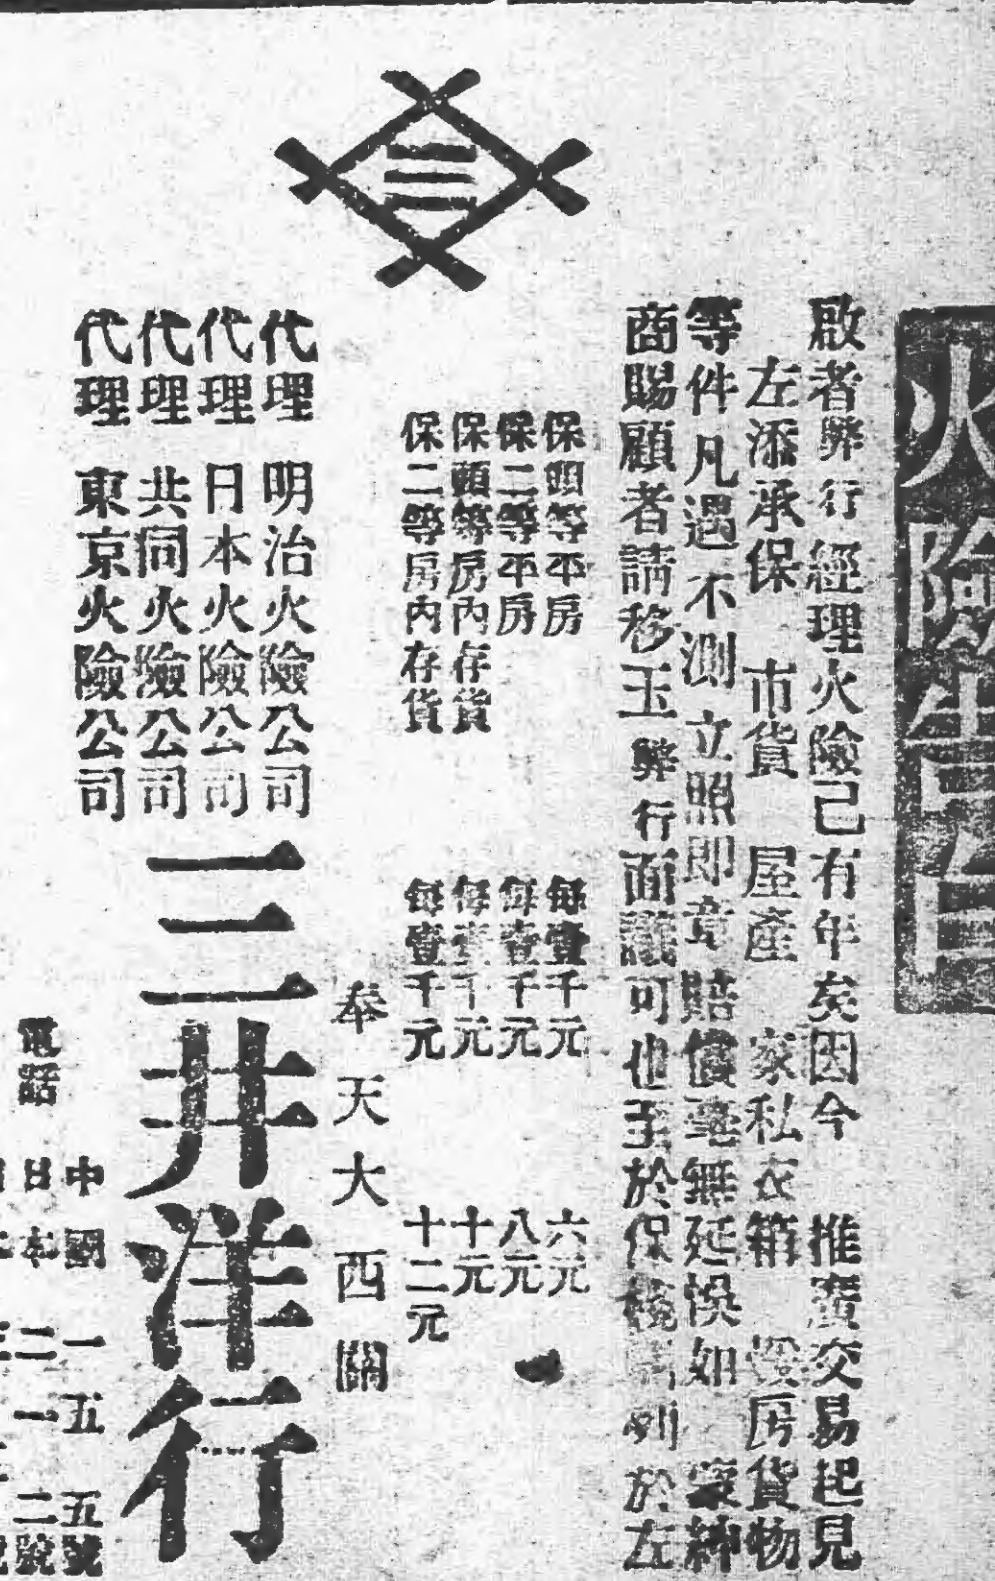 火險生白
啟者弊行經理火險已有年矣因今推廣交易起見
左添承保市貨屋產家私衣箱房貨物
等件凡遇不測立照即章賠償毫無延悞如蒙紳
商賜顧者請移玉弊行面議可也至於保列於左
保頭等平房 每壹千元 六元
保二等平房 每壹千元 八元
保頭等房內存貨 每壹千元 十元
保二等房內存貨 每壹千元 十二元
奉天大西關
三
代理明治火險公司
代理日本火險公司
代理共同火險公司
代理東京火險公司
三井洋行
電話
中國一五五號
日本二一二號